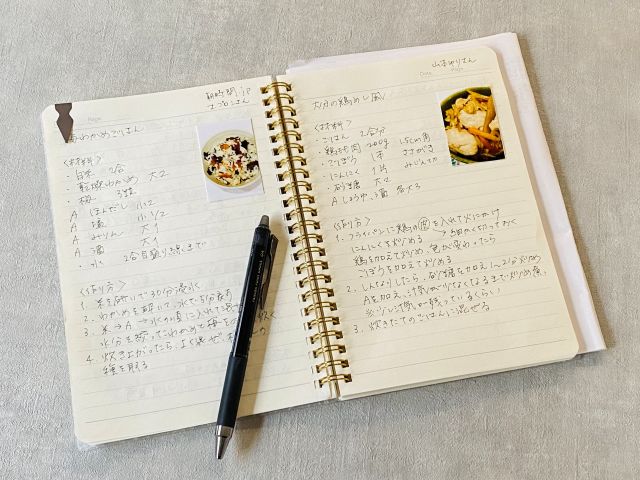 Page
朝時間.jp
エプロンさん
梅わかめごはん
<材料>
・白米 2合
・乾燥わかめ 大2
・梅
A ほんだし 小2
A 塩 小1/2
A みりん 大1
A 酒 大1
・水 2合目盛り線まで
<作り方>
1. 米を研いで30分浸水
2. わかめを
3. 米→A→水の順に入れて
水分を わかめと梅を 炊く
4. 炊き上がったら、よく混ぜ
種を取る
Date Page
山本ゆりさん
大分の鶏めし風
<材料>
・ごはん 2合分
・鶏もも肉 200g 1.5cm角
・ごぼう 1本 ささがき
・にんにく 1片 みじん切り
・砂糖 大2
A しょうゆ、酒 各大3
<作り方>
1. フライパンに鶏の皮を入れて火にかけ
にんにくを炒める → 細かく切っておく
鶏を加えて炒め、色が変わったら
ごぼうを加えて炒める
2. しんなりしたら、砂糖を加え1~2分炒め
Aを加え、汁気が少なくなるまで炒め煮。
※少し汁気が残っているくらい
3. 炊きたてのごはんに混ぜる